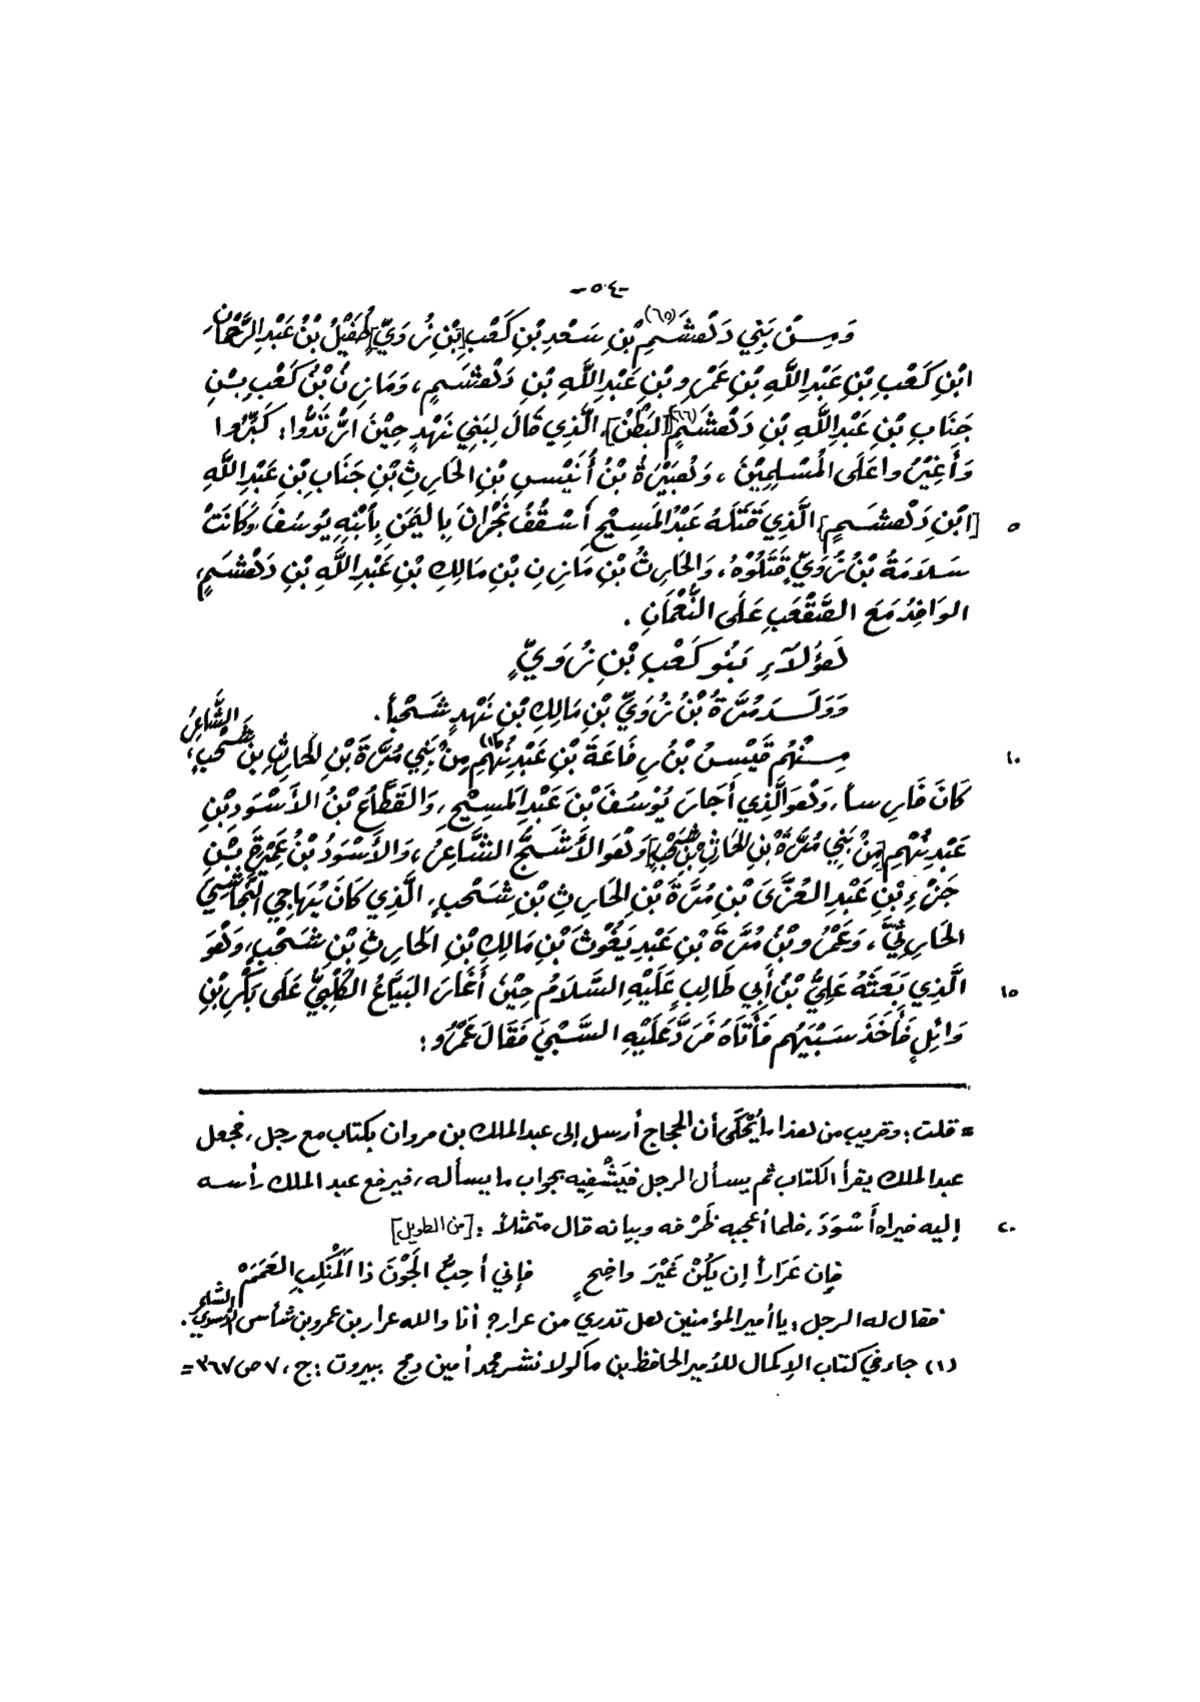 -٥٠٤-
وَمِنْ بَنِي دَهْشَمِ (٦٥) بْنِ سَعْدِ بْنِ كَعْبِ [بْنِ زُوَيِّ] طُفَيْلُ بْنُ عَبْدِ الرَّحْمَانِ
ابْنِ كَعْبِ بْنِ عَبْدِ اللَّهِ بْنِ عَمْرِو بْنِ عَبْدِ اللَّهِ بْنِ دَهْشَمٍ، وَمَازِنُ بْنُ كَعْبِ بْنِ
جَنَابِ بْنِ عَبْدِ اللَّهِ بْنِ دَهْشَمٍ (٦٦) [البَطْنُ]، الَّذِي قَالَ لِبَنِي نَهْدٍ حِيْنَ ارْتَدُّوا: كَبِّرُوا
وَأَغِيْرُوا عَلَى الْمُسْلِمِيْنَ، وَهُبَيْرَةُ بْنُ أُنَيْسِ بْنِ الحَارِثِ بْنِ جَنَابِ بْنِ عَبْدِ اللَّهِ
[ابْنِ دَهْشَمٍ] الَّذِي قَتَلَهُ عَبْدُ المَسِيْحِ أُسْقُفُ نَجْرَانَ بِاليَمَنِ بِابْنِهِ يُوسُفَ، وَكَانَتْ ٥
سَلَامَةُ بْنُ زُوَيٍّ قَتَلُوْهُ، وَالحَارِثُ بْنِ مَازِنِ بْنِ مَالِكِ بْنِ عَبْدِ اللَّهِ بْنِ دَهْشَمٍ،
الوَافِدُ مَعَ الصَّقْعَبِ عَلَى النُّعْمَانِ.
هَؤُلاَءِ بَنُو كَعْبِ بْنِ زُوَيٍّ
وَوَلَدَ مُرَّةُ بْنُ زُوَيِّ بْنِ مَالِكِ بْنِ نَهْدٍ شَحْباً.
مِنْهُم قَيْسُ بْنُ رِفَاعَةَ بْنِ عَبْدِنُهْمٍ (١) مِنْ بَنِي مُرَّةَ بْنِ الحَارِثِ بْنِ شَحْبٍ، الشَّاعِرُ ١٠
كَانَ فَارِساً، وَهُوَ الَّذِي أَجَارَ يُوْسُفَ بْنَ عَبْدِ المَسِيْحِ، وَالقَطَّاعُ بْنُ الأَسْوَدِ بْنِ
عَبْدِنُهْمٍ [مِنْ بَنِي مُرَّةَ بْنِ الحَارِثِ بْنِ شَحْبٍ] وَهُوَ الأَشَجُّ الشَّاعِرُ، وَالأَسْوَدُ بْنُ عَمِيْرَةَ بْنِ
جَزْءِ بْنِ عَبْدِ العُزَّى بْنِ مُرَّةَ بْنِ الحَارِثِ بْنِ شَحْبٍ، الَّذِي كَانَ يُهَاجِي النَّجَاشِيَّ
الحَارِثِيَّ، وَعَمْرُو بْنُ مُرَّةَ بْنِ عَبْدِ يَغُوْثَ بْنِ مَالِكِ بْنِ الحَارِثِ بْنِ شَحْبٍ، وَهُوَ
الَّذِي بَعَثَهُ عَلِيُّ بْنُ أَبِي طَالِبٍ عَلَيْهِ السَّلَامُ حِيْنَ أَغَارَ البَيَّاعُ الكَلْبِيُّ عَلَى بَكْرِ بْنِ ١٥
وَائِلٍ فَأَخَذَ سَبْيَهُم فَأَتَاهُ فَرَدَّ عَلَيْهِ السَّبْيَ فَقَالَ عَمْرُو:
= قلت: وقريب من هذا ما يُحْكَى أن الحجاج أرسل إلى عبد الملك بن مروان بكتاب مع رجل، فجعل
عبد الملك يقرأ الكتاب ثم يسأل الرجل فيَشْفِيه بجواب ما يسأله، فيرفع عبد الملك رأسه
إليه فيراه أَسْوَدَ، فلما أعجبه ظَرْفه وبيانه قال متمثلاً: [من الطويل] ٢٠
فإن عَرَاراً إن يَكُنْ غَيْرَ واضِحٍ فإني أحِبُّ الجَوْنَ ذا المَنْكِبِ العَمَمْ
فقال له الرجل: يا أمير المؤمنين هل تدري من عرار؟ أنا والله عرار بن عمرو بن شأس الأسدي الشاعر.
(١) جاء في كتاب الإكمال للأمير الحافظ بن ماكولا نشر محمد أمين دمج بيروت: ج، ٧ ص ٣٦٧ =